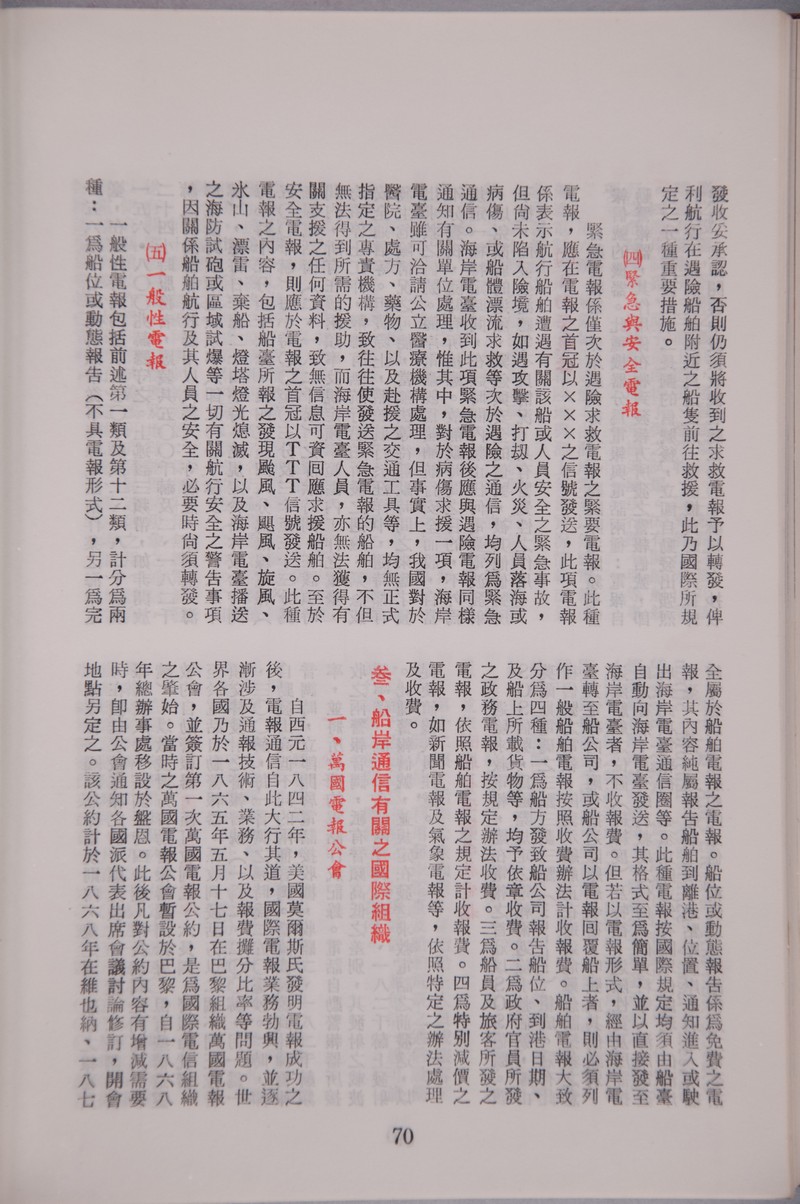 發收妥承認，否則仍須將收到之求救電報予以轉發，俾
利航行在遇險船舶附近之船隻前往救援，此乃國際所規
定之一種重要措施。
㈣緊急與安全電報
緊急電報係僅次於遇險求救電報之緊要電報。此種
電報，應在電報之首冠以×××之信號發送，此項電報
係表示航行船舶遭遇有關該船或人員安全之緊急事故，
但尚未陷入險境，如遇攻擊、打刼、火災、人員落海或
病傷、或船體漂流求救等次於遇險之通信，均列爲緊急
通信。海岸電臺收到此項緊急電報後應與遇險電報同樣
通知有關單位處理，惟其中，對於病傷求援一項，海岸
電臺雖可洽請公立醫療機構處理，但事實上，我國對於
醫院、處方、藥物、以及赴援之交通工具等，均無正式
指定之專責機構，致往往使發送緊急電報的船舶，不但
無法得到所需的援助，而海岸電臺人員，亦無法獲得有
關支援之任何資料，致無信息可資囘應求援船舶。至於
安全電報，則應於電報之首冠以ＴＴＴ信號發送。此種
電報之內容，包括船臺所報之發現颱風、颶風、旋風、
氷山、漂雷、棄船、燈塔燈光熄滅，以及海岸電臺播送
之海防試砲或區域試爆等一切有關航行安全之警告事項
，因關係船舶航行及其人員之安全，必要時尙須轉發。
㈤一般性電報
一般性電報包括前述第一類及第十二類，計分爲兩
種：一爲船位或動態報告（不具電報形式），另一爲完
全屬於船舶電報之電報。船位或動態報告係爲免費之電
報，其內容純屬報告船舶到離港、位置、通知進入或駛
出海岸電臺通信圈等。此種電報按國際規定均須由船臺
自動向海岸電臺發送，其格式至爲簡單，並以直接發至
海岸電臺者，不收報費。但若以電報形式，經由海岸電
臺轉至船公司，或船公司以電報囘覆船上者，則必須列
作一般船舶電報按照收費辦法計收報費。船舶電報大致
分爲四種：一爲船方發致船公司報告船位、到港日期、
及船上所載貨物等，均予依章收費。二爲政府官員所發
之政務電報，按規定辦法收費。三爲船員及旅客所發之
電報，依照船舶電報之規定計收報費。四爲特別減價之
電報，如新聞電報及氣象電報等，依照特定之辦法處理
及收費。
叁、船岸通信有關之國際組織
一、萬國電報公會
自西元一八四二年，美國莫爾斯氏發明電報成功之
後，電報通信自此大行其道，國際電報業務勃興，並逐
漸涉及通報技術、業務、以及報費攤分比率等問題。世
界各國乃於一八六五年五月十七日在巴黎組織萬國電報
公會，並簽訂第一次萬國電報公約，是爲國際電信組織
之肇始。當時之萬國電報公會暫設於巴黎，自一八六八
年總辦事處移設於盤恩。此後凡對公約內容有增減需要
時，卽由公會通知各國派代表出席會議討論修訂，開會
地點另定之。該公約計於一八六八年在維也納、一八七
70